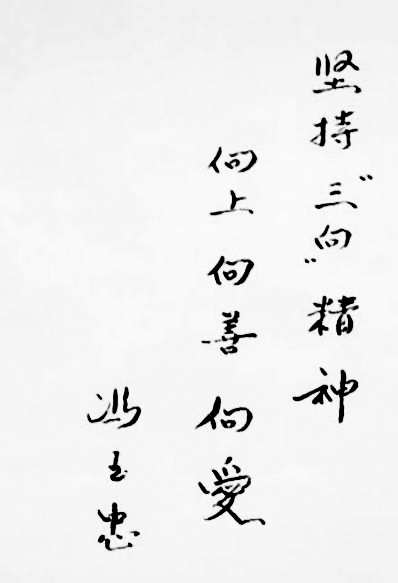 坚持“三向”精神
向上向善向愛
冯玉忠